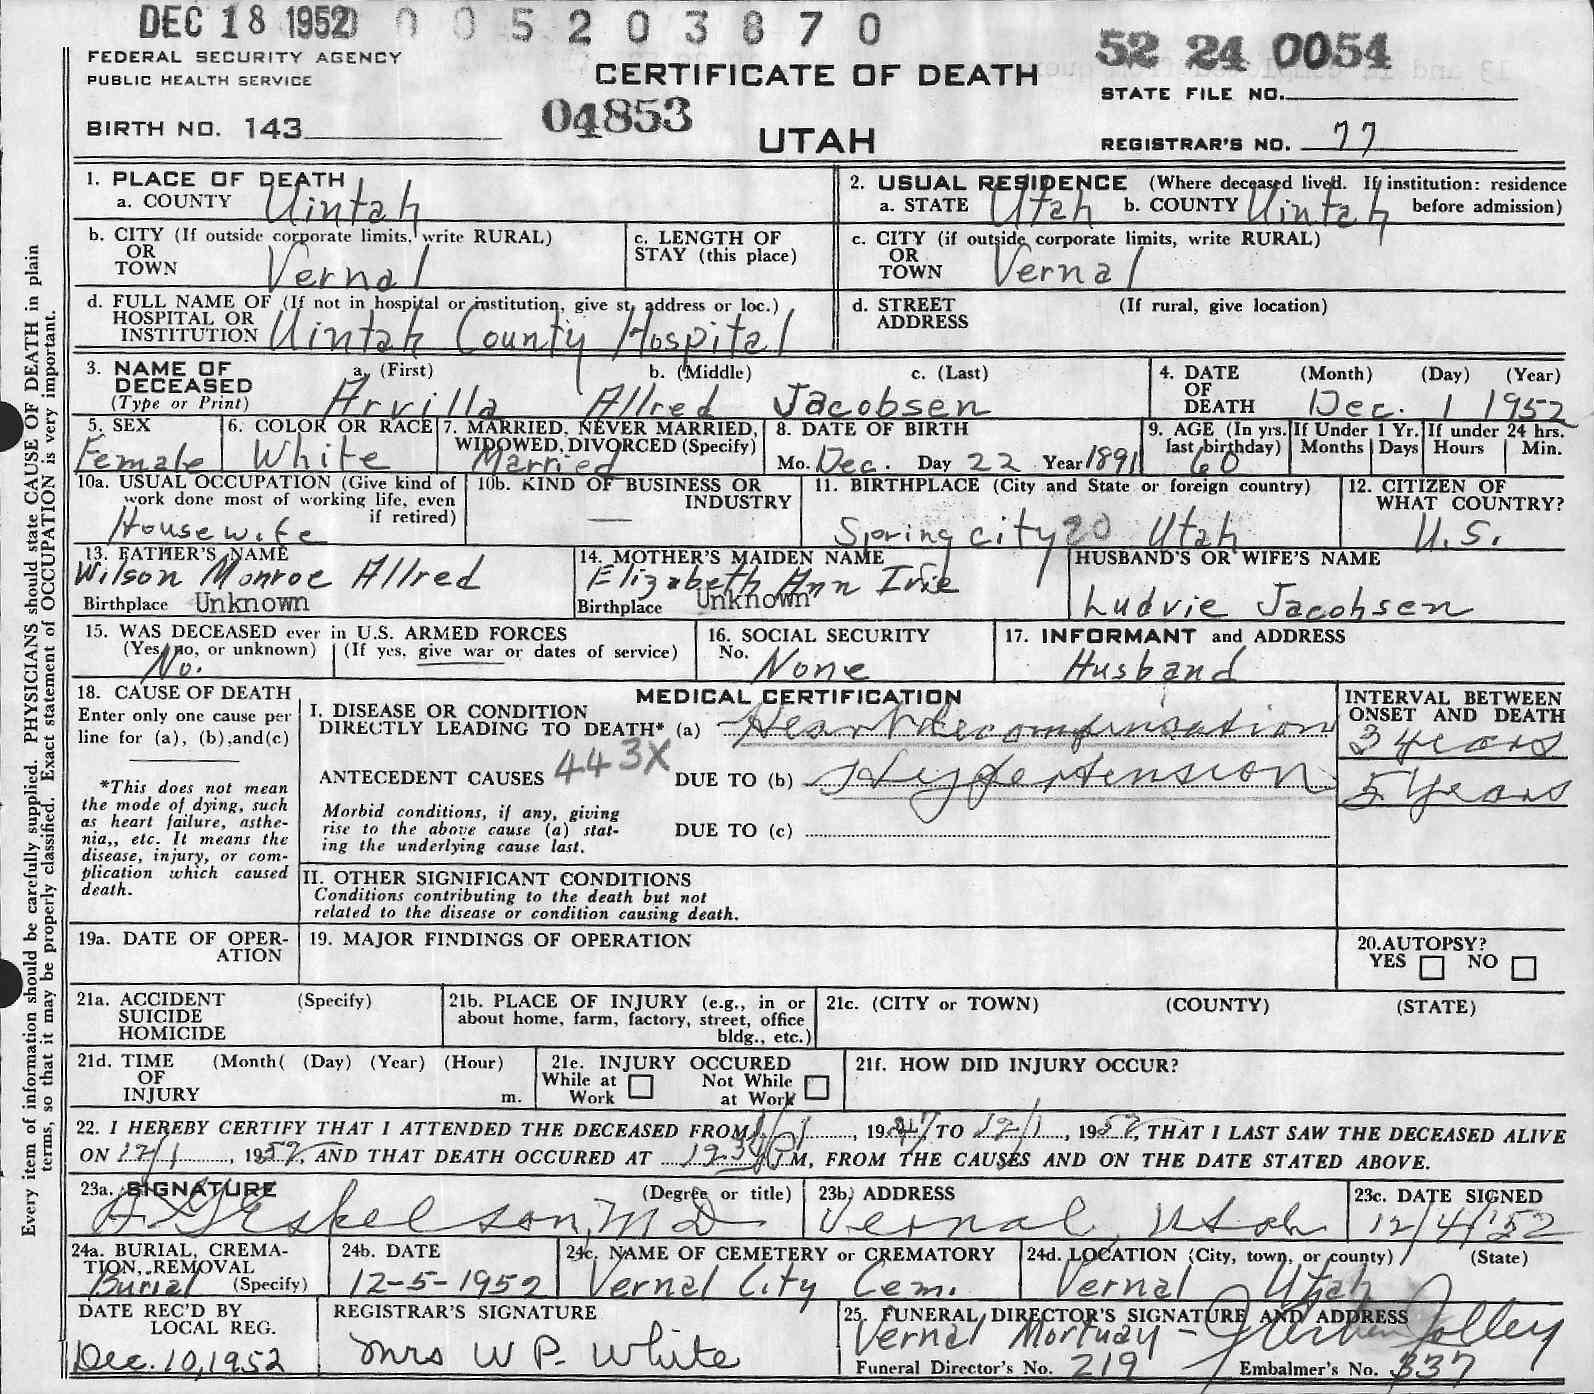 DEC 18 1952 0 0 5 2 0 3 8 7 0
52 24 0054
FEDERAL SECURITY AGENCY
PUBLIC HEALTH SERVICE
CERTIFICATE OF DEATH
STATE FILE NO.
BIRTH NO. 143
04853
UTAH
REGISTRAR'S NO. 77
1. PLACE OF DEATH
a. COUNTY Uintah
2. USUAL RESIDENCE (Where deceased lived. If institution: residence before admission)
a. STATE Utah b. COUNTY Uintah
b. CITY (If outside corporate limits, write RURAL)
OR
TOWN Vernal
c. LENGTH OF
STAY (this place)
c. CITY (if outside corporate limits, write RURAL)
OR
TOWN Vernal
d. FULL NAME OF (If not in hospital or institution, give st. address or loc.)
HOSPITAL OR
INSTITUTION Uintah County Hospital
d. STREET
ADDRESS
(If rural, give location)
3. NAME OF
DECEASED
(Type or Print)
a. (First) b. (Middle) c. (Last)
Arvilla Allred Jacobsen
4. DATE
OF
DEATH
(Month) (Day) (Year)
Dec. 1 1952
5. SEX
Female
6. COLOR OR RACE
White
7. MARRIED, NEVER MARRIED,
WIDOWED, DIVORCED (Specify)
Married
8. DATE OF BIRTH
Mo. Dec. Day 22 Year 1891
9. AGE (In yrs.
last birthday)
60
If Under 1 Yr.
Months Days
If under 24 hrs.
Hours Min.
10a. USUAL OCCUPATION (Give kind of
work done most of working life, even
if retired)
Housewife
10b. KIND OF BUSINESS OR
INDUSTRY
—
11. BIRTHPLACE (City and State or foreign country)
Spring city 20 Utah
12. CITIZEN OF
WHAT COUNTRY?
U.S.
13. FATHER'S NAME
Wilson Monroe Allred
Birthplace Unknown
14. MOTHER'S MAIDEN NAME
Elizabeth Ann Ivie
Birthplace Unknown
HUSBAND'S OR WIFE'S NAME
Ludvie Jacobsen
15. WAS DECEASED ever in U.S. ARMED FORCES
(Yes, no, or unknown) (If yes, give war or dates of service)
No.
16. SOCIAL SECURITY
No. None
17. INFORMANT and ADDRESS
Husband
18. CAUSE OF DEATH
Enter only one cause per
line for (a), (b), and (c)
*This does not mean
the mode of dying, such
as heart failure, asthe-
nia,, etc. It means the
disease, injury, or com-
plication which caused
death.
MEDICAL CERTIFICATION
I. DISEASE OR CONDITION
DIRECTLY LEADING TO DEATH* (a) Heart Decompensation
443X
ANTECEDENT CAUSES DUE TO (b) Hypertension
Morbid conditions, if any, giving
rise to the above cause (a) stat-
ing the underlying cause last.
DUE TO (c)
INTERVAL BETWEEN
ONSET AND DEATH
3 years
5 years
II. OTHER SIGNIFICANT CONDITIONS
Conditions contributing to the death but not
related to the disease or condition causing death.
19a. DATE OF OPER-
ATION
19. MAJOR FINDINGS OF OPERATION
20. AUTOPSY?
YES NO
21a. ACCIDENT (Specify)
SUICIDE
HOMICIDE
21b. PLACE OF INJURY (e.g., in or
about home, farm, factory, street, office
bldg., etc.)
21c. (CITY or TOWN) (COUNTY) (STATE)
21d. TIME (Month( (Day) (Year) (Hour)
OF
INJURY m.
21e. INJURY OCCURED
While at Work Not While at Work
21f. HOW DID INJURY OCCUR?
22. I HEREBY CERTIFY THAT I ATTENDED THE DECEASED FROM 1/1, 1947, TO 12/1, 1952, THAT I LAST SAW THE DECEASED ALIVE
ON 12/1, 1952, AND THAT DEATH OCCURED AT M, FROM THE CAUSES AND ON THE DATE STATED ABOVE.
23a. SIGNATURE (Degree or title)
Eskelson, MD
23b. ADDRESS
Vernal, Utah
23c. DATE SIGNED
12/4/52
24a. BURIAL, CREMA-
TION, REMOVAL
(Specify)
Burial
24b. DATE
12-5-1952
24c. NAME OF CEMETERY or CREMATORY
Vernal City Cem.
24d. LOCATION (City, town, or county) (State)
Vernal Utah
DATE REC'D BY
LOCAL REG.
Dec. 10, 1952
REGISTRAR'S SIGNATURE
Mrs W P. White
25. FUNERAL DIRECTOR'S SIGNATURE AND ADDRESS
Vernal Mortuay - Jolley
Funeral Director's No. 219 Embalmer's No. 337
Every item of information should be carefully supplied. PHYSICIANS should state CAUSE OF DEATH in plain
terms, so that it may be properly classified. Exact statement of OCCUPATION is very important.